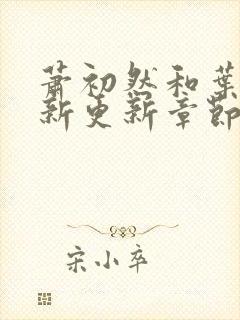 萧初然和叶
新更新章节
宋小卒